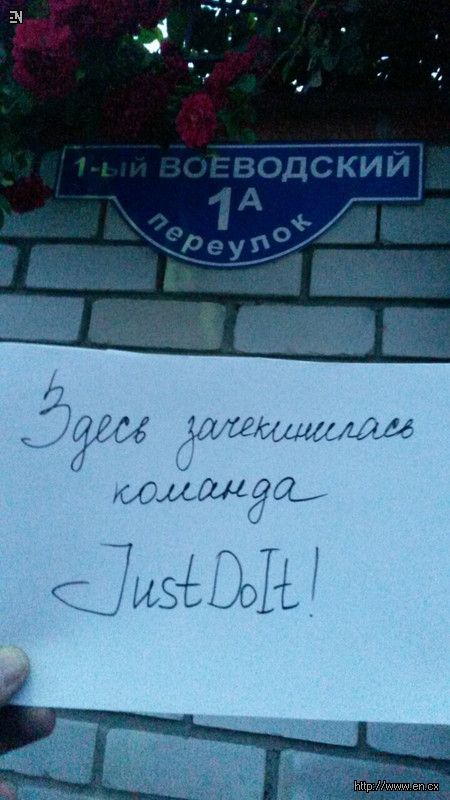 EN
1-ый ВОЕВОДСКИЙ
1А
переулок
Здесь зачекинилась
команда
JustDoIt!
http://www.en.cx